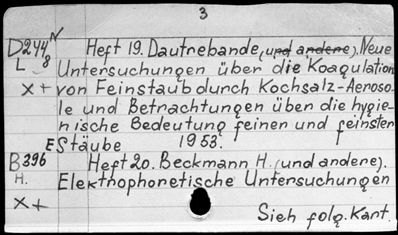 3
D244/8 N Heft 19. Dautrebande, (und andere). Neue
L Untersuchungen über die Koagulation
x+ von Feinstaub durch Kochsalz-Aeroso-
le und Betrachtungen über die hygie-
nische Bedeutung feinen und feinsten
E Stäube 1953.
B396 Heft 20. Beckmann H. (und andere).
H. Elektrophoretische Untersuchungen
x+
Sieh folg. Kart.